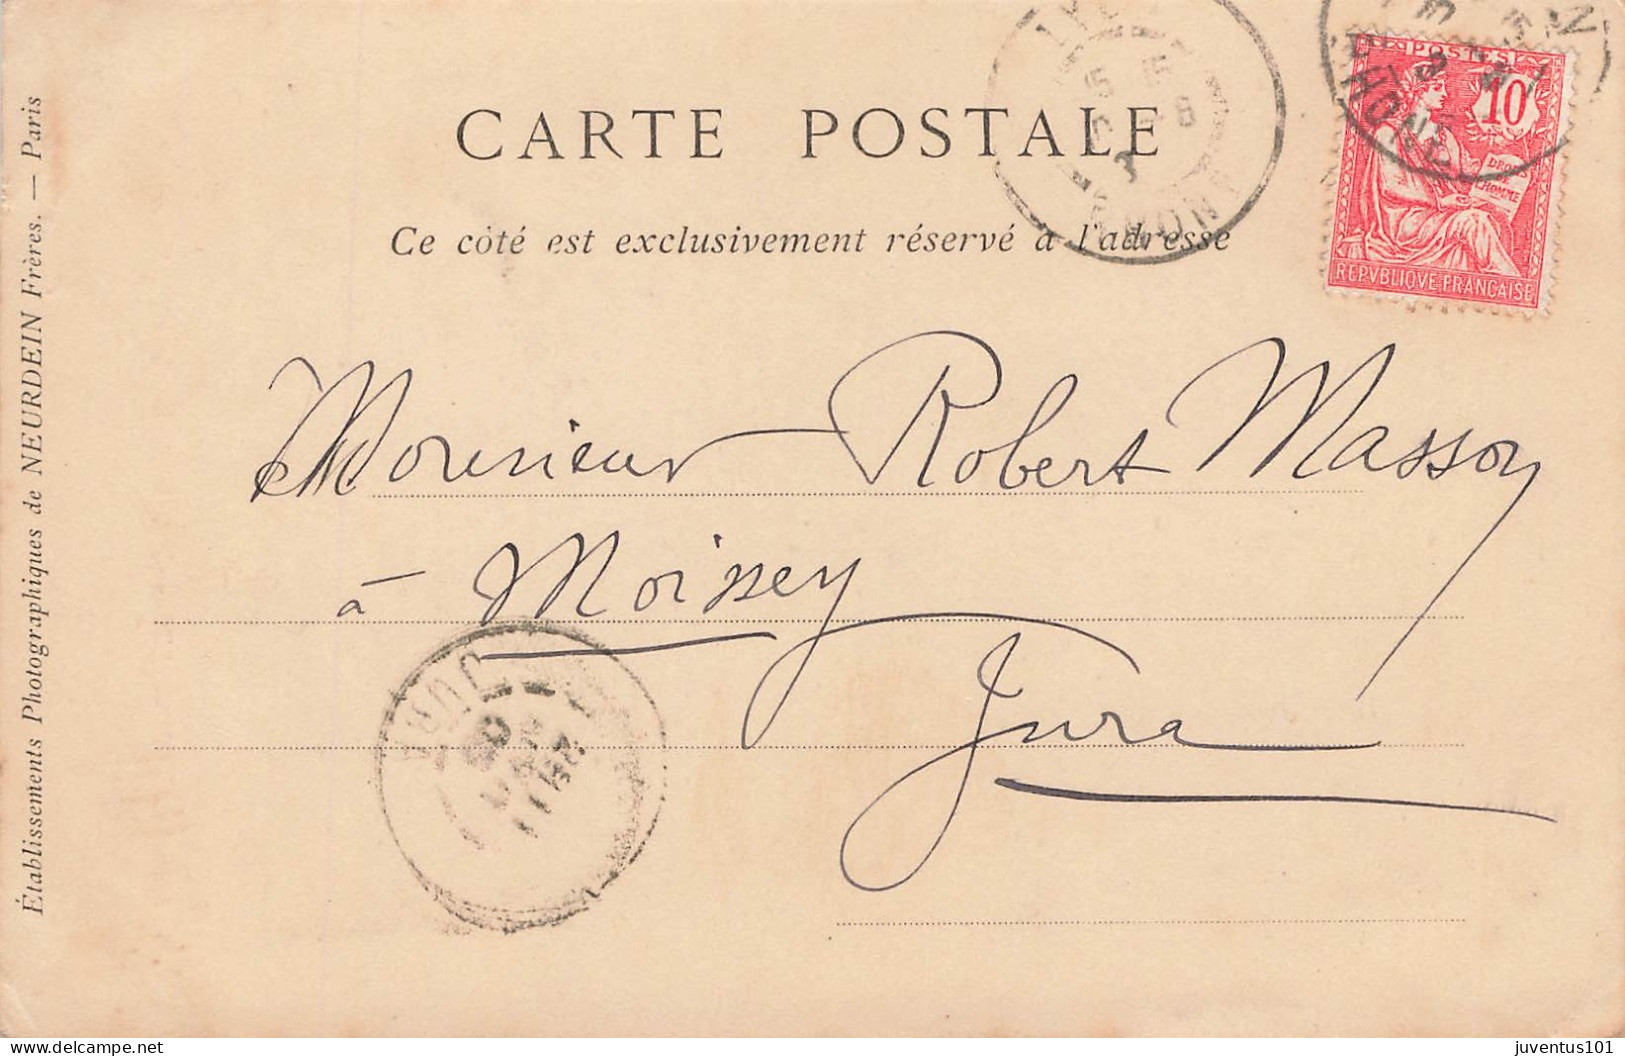 CARTE POSTALE
Ce côté est exclusivement réservé à l'adresse
POSTES
10
DROITS
DE
L'HOMME
REPVBLIQVE FRANÇAISE
RHONE
Monsieur Robert Masson
à Moissey
Jura
JURA
Établissements Photographiques de NEURDEIN Frères. — Paris
delcampe.net
juventus101